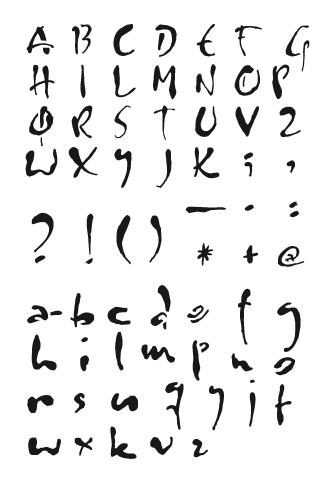 A B C D E F G
H I L M N O P
Q R S T U V Z
W X Y J K ; ,
? ! ( ) — - :
* + @
a-b c d e f g
h i l m p n o
r s u q y j t
w x k v z